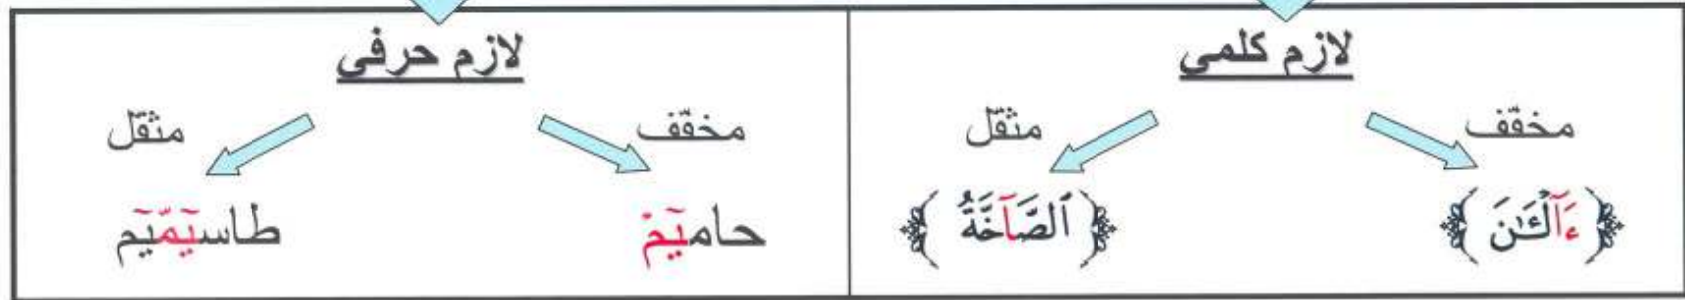 لازم كلمي
مخفّف
مثقّل
﴿ ءَآلْـَٰٔنَ ﴾
﴿ ٱلصَّآخَّةُ ﴾
لازم حرفي
مخفّف
مثقّل
حاميٓمْ
طاسيٓمّيٓم